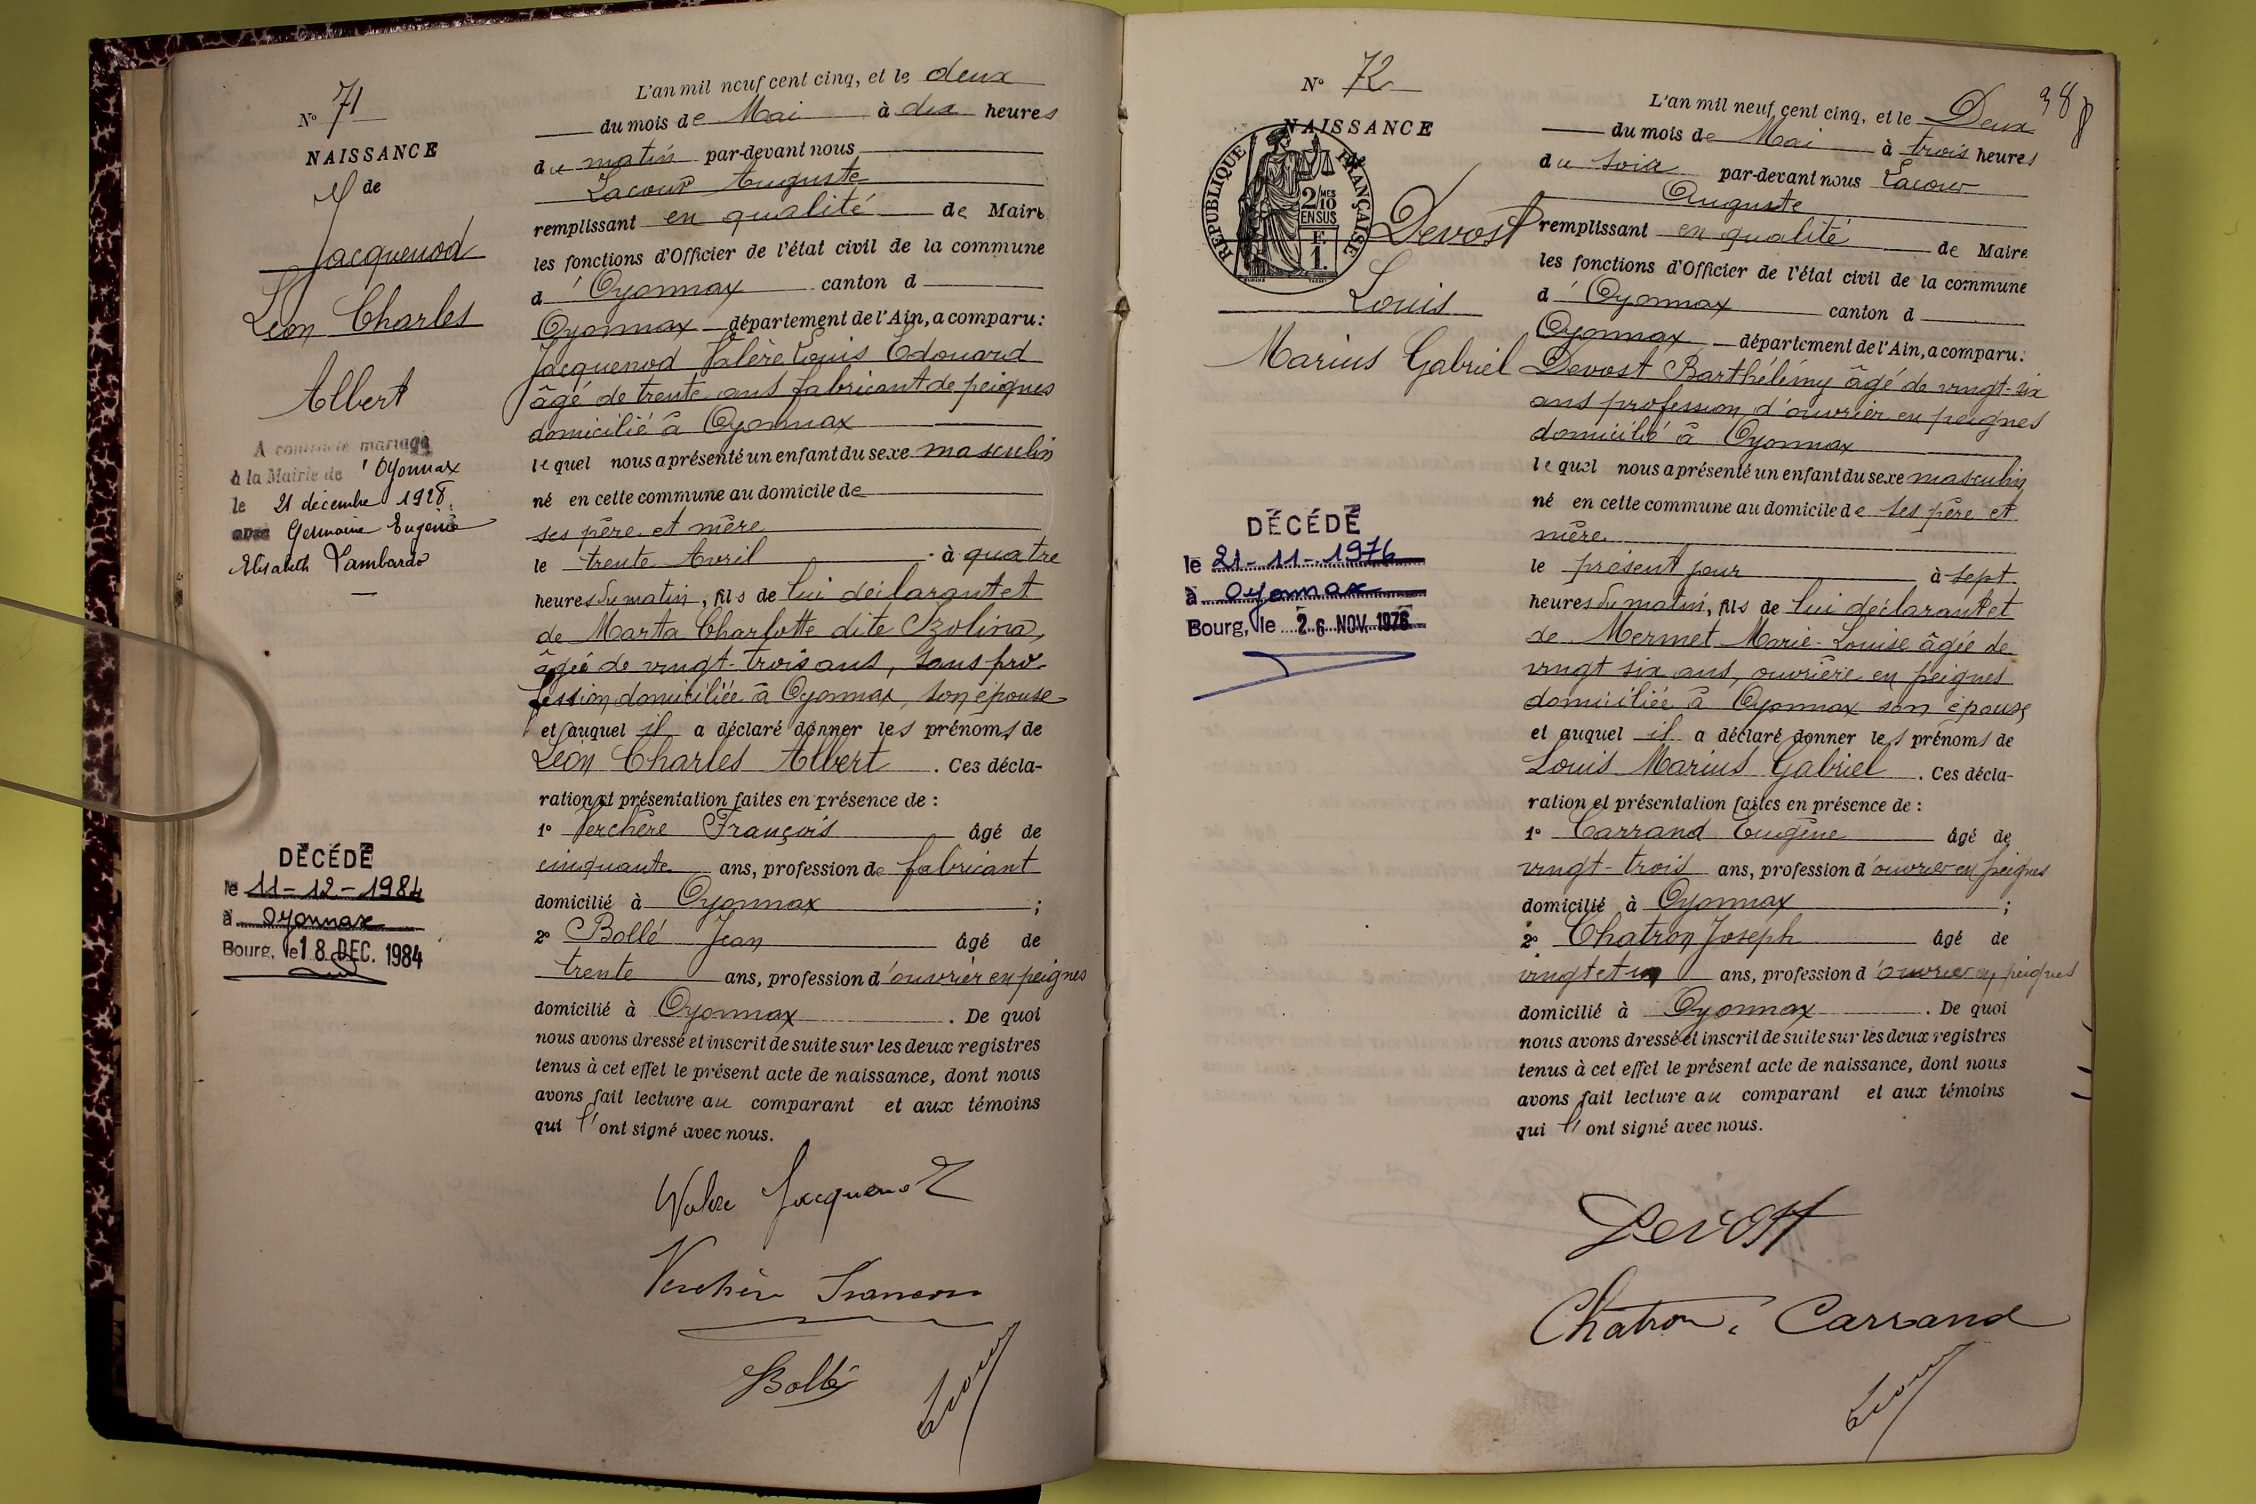 N° 71
NAISSANCE
de
Jacquenod
Léon Charles
Albert
A contracté mariage
à la Mairie de d'Oyonnax
le 21 décembre 1928
avec Germaine Eugénie
Elisabeth Lambardo
DÉCÉDÉ
le 11-12-1984
à Oyonnax
Bourg, le 18 DEC. 1984
L'an mil neuf cent cinq, et le deux
du mois de Mai à dix heures
du matin par-devant nous
Lacour Auguste
remplissant en qualité de Maire
les fonctions d'Officier de l'état civil de la commune
d'Oyonnax canton d
Oyonnax département de l'Ain, a comparu:
Jacquenod Valère Louis Edouard
âgé de trente ans fabricant de peignes
domicilié à Oyonnax
lequel nous a présenté un enfant du sexe masculin
né en cette commune au domicile de
ses père et mère
le trente Avril à quatre
heures du matin, fils de lui déclarant et
de Marta Charlotte dite Izolina,
âgée de vingt-trois ans, sans pro-
fession domiciliée à Oyonnax, son épouse
et auquel il a déclaré donner les prénoms de
Léon Charles Albert. Ces décla-
ration et présentation faites en présence de :
1° Verchère François âgé de
cinquante ans, profession de fabricant
domicilié à Oyonnax ;
2° Bollé Jean âgé de
trente ans, profession d'ouvrier en peignes
domicilié à Oyonnax. De quoi
nous avons dressé et inscrit de suite sur les deux registres
tenus à cet effet le présent acte de naissance, dont nous
avons fait lecture au comparant et aux témoins
qui l'ont signé avec nous.
Valère Jacquenod
Verchère François
Bollé
Lacour
38
N° 72
NAISSANCE
de
RÉPUBLIQUE FRANÇAISE
2/10 MES
EN SUS
F.
1.
Devost
Louis
Marius Gabriel
DÉCÉDÉ
le 21-11-1976
à Oyonnax
Bourg, le 26 NOV. 1976
L'an mil neuf cent cinq, et le Deux
du mois de Mai à trois heures
du soir par-devant nous Lacour
Auguste
remplissant en qualité de Maire
les fonctions d'Officier de l'état civil de la commune
d'Oyonnax canton d
Oyonnax département de l'Ain, a comparu:
Devost Barthélémy âgé de vingt-six
ans profession d'ouvrier en peignes
domicilié à Oyonnax
lequel nous a présenté un enfant du sexe masculin
né en cette commune au domicile de ses père et
mère
le présent jour à sept
heures du matin, fils de lui déclarant et
de Mermet Marie-Louise âgée de
vingt six ans, ouvrière en peignes
domiciliée à Oyonnax son épouse
et auquel il a déclaré donner les prénoms de
Louis Marius Gabriel. Ces décla-
ration et présentation faites en présence de :
1° Carrand Eugène âgé de
vingt-trois ans, profession d'ouvrier en peignes
domicilié à Oyonnax ;
2° Chatron Joseph âgé de
vingt et un ans, profession d'ouvrier en peignes
domicilié à Oyonnax. De quoi
nous avons dressé et inscrit de suite sur les deux registres
tenus à cet effet le présent acte de naissance, dont nous
avons fait lecture au comparant et aux témoins
qui l'ont signé avec nous.
Devost
Chatron Carrand
Lacour